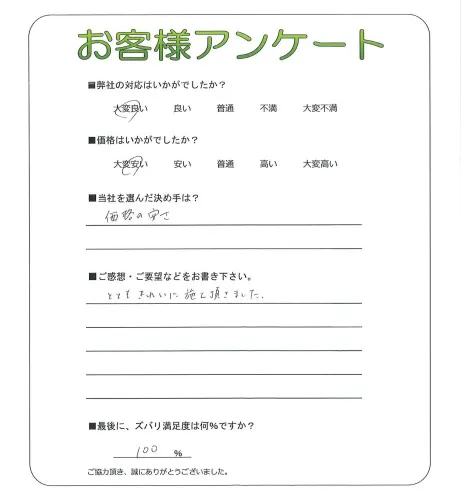 お客様アンケート
■弊社の対応はいかがでしたか？
大変良い 良い 普通 不満 大変不満
■価格はいかがでしたか？
大変安い 安い 普通 高い 大変高い
■当社を選んだ決め手は？
価格の安さ
■ご感想・ご要望などをお書き下さい。
とてもきれいに施工頂きました。
■最後に、ズバリ満足度は何%ですか？
100 %
ご協力頂き、誠にありがとうございました。